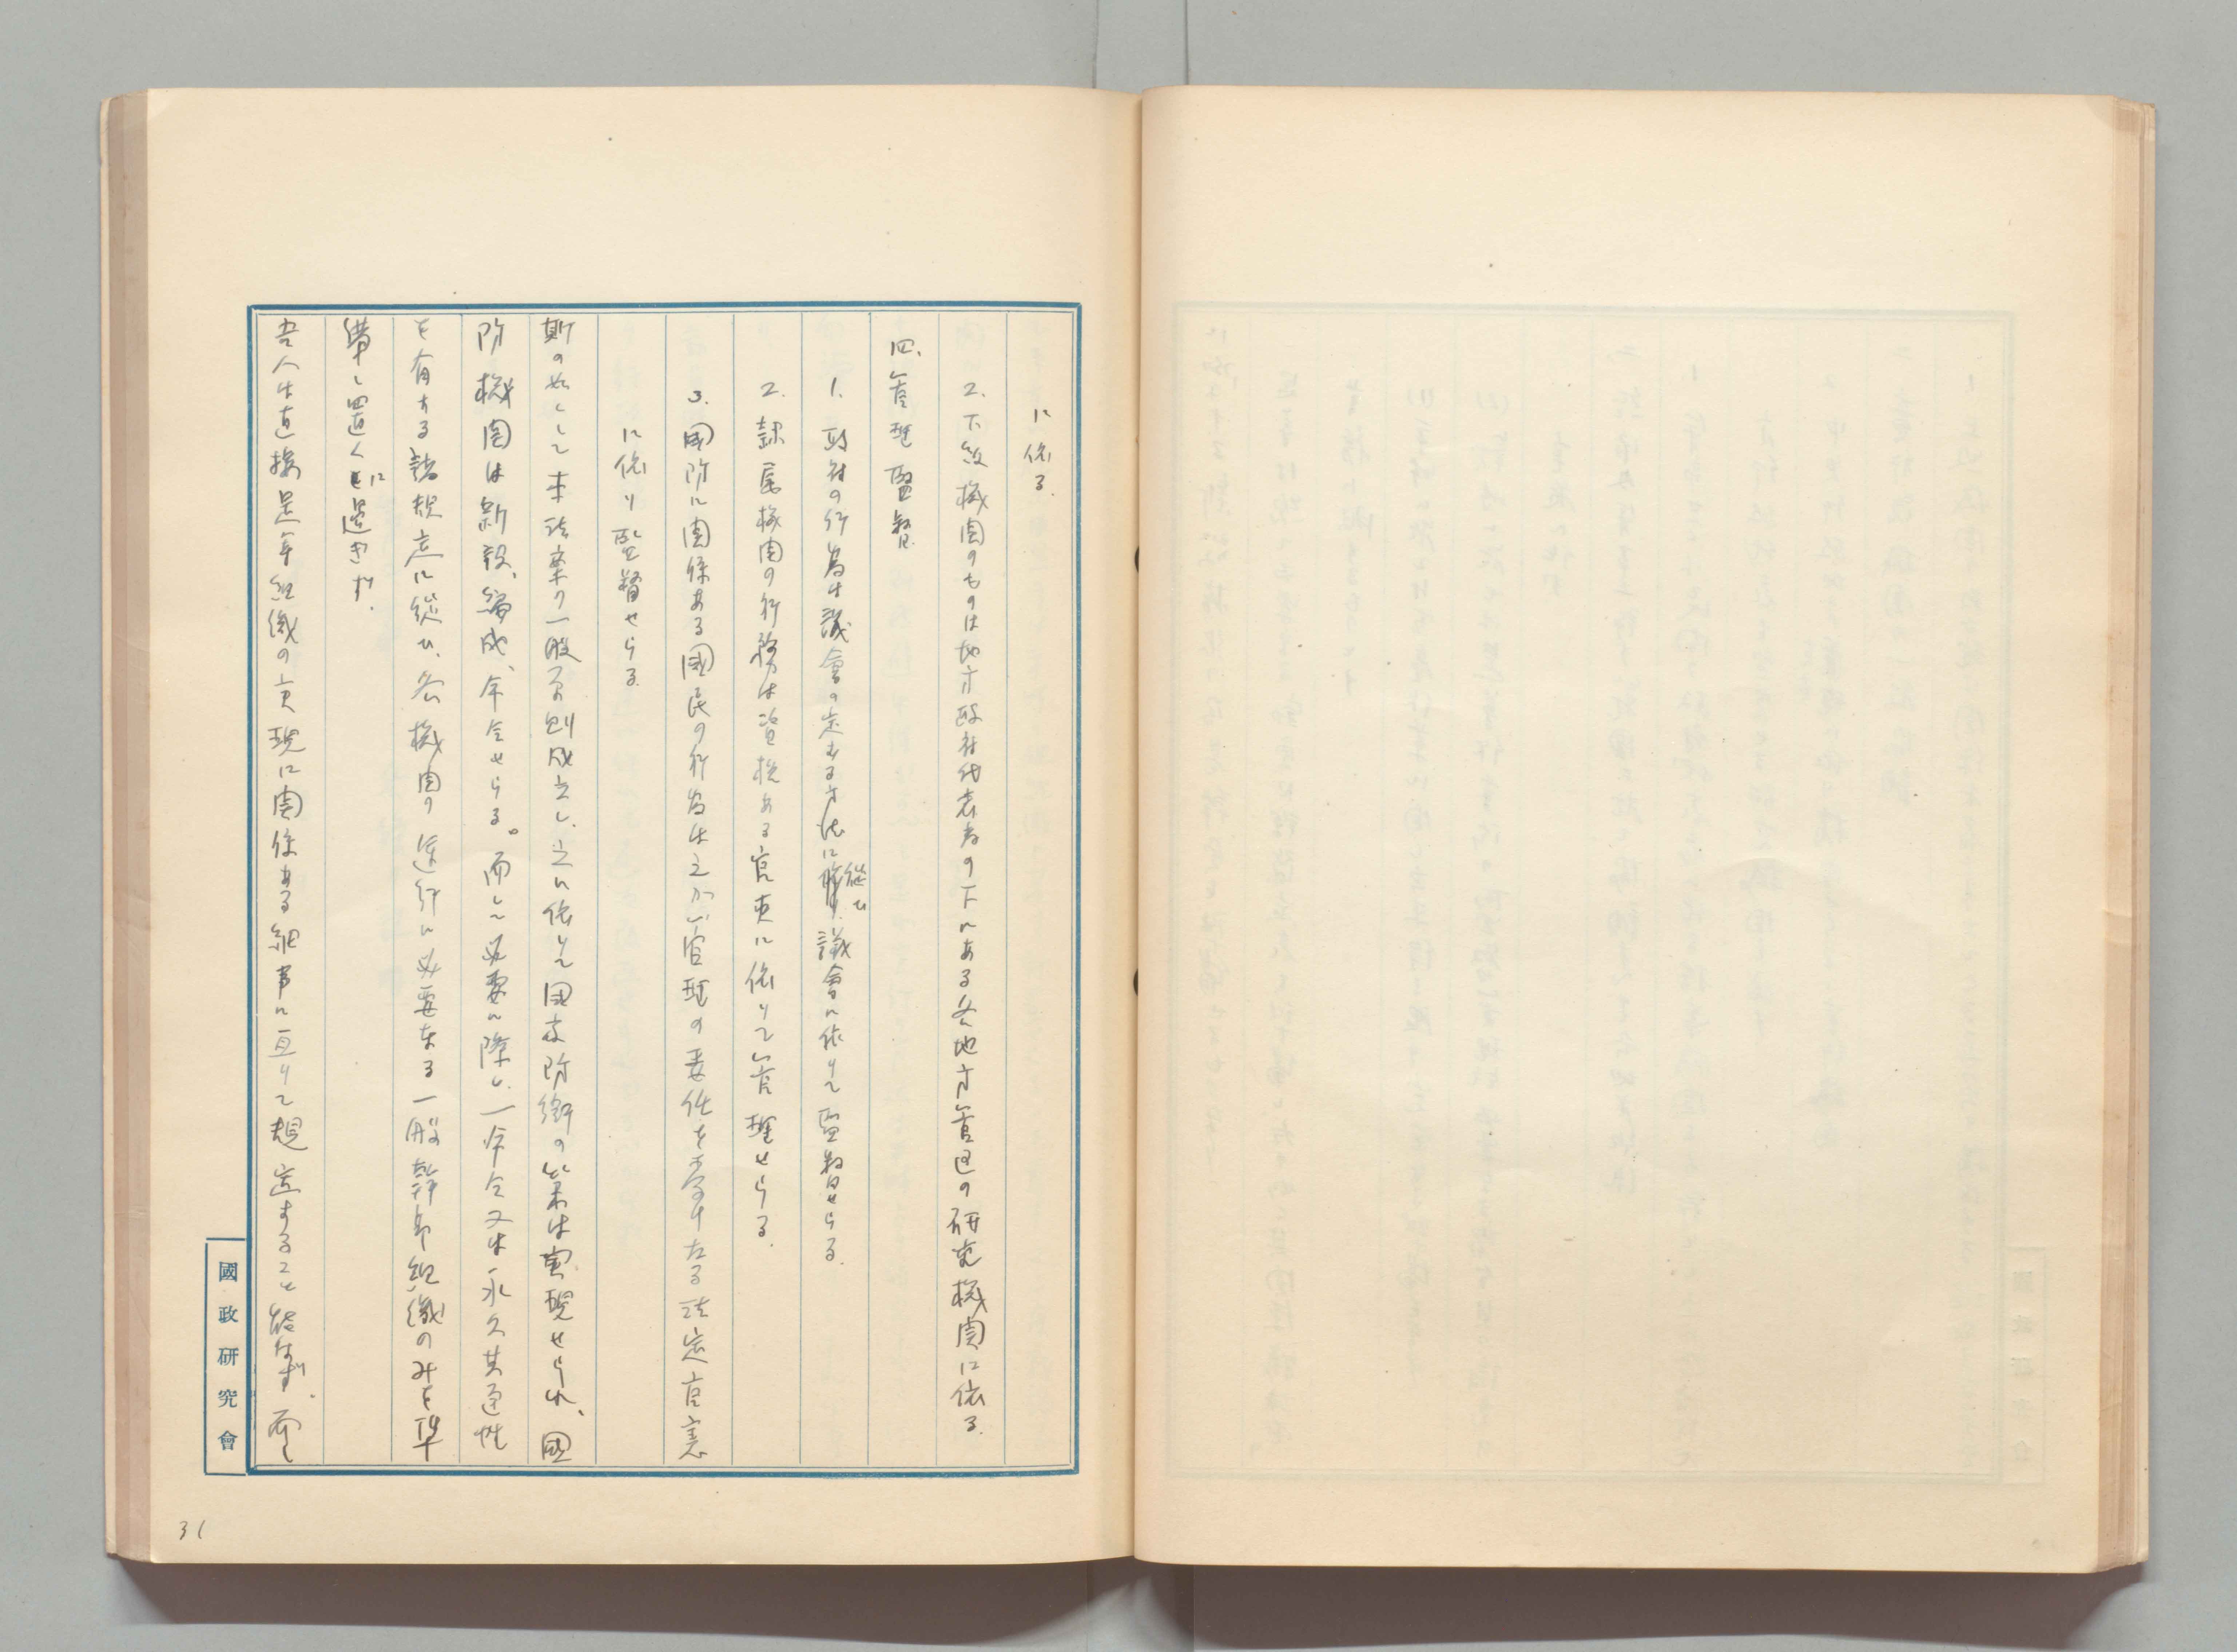 に依る.
2. 下級機関のものは地方政府代表者の下にある各地方管区の研究機関に依る.
四. 管理監督.
1. 政府の行為は議會の定むる方法に從ひ議會に依りて監督せらる.
2. 隷属機関の行務は資格ある官吏に依りて管理せらる.
3. 國防に関係ある國民の行為は之が管理の委任を享けたる法定官憲
に依り監督せらる.
斯の如くして本法案の一般原則成立し、之に依りて国家防衛の策は実現せられ、國
防機関は新設、編成、命令せらる。而して必要に際し、一命令又は永久共通性
を有する諸規定に從ひ、各機関の運行に必要なる一般幹部組織のみを準
備し置くに過ぎず.
吾人は直接是等組織の実現に関係ある細事に亘りて規定すること能はず. 而し
國政研究會
31